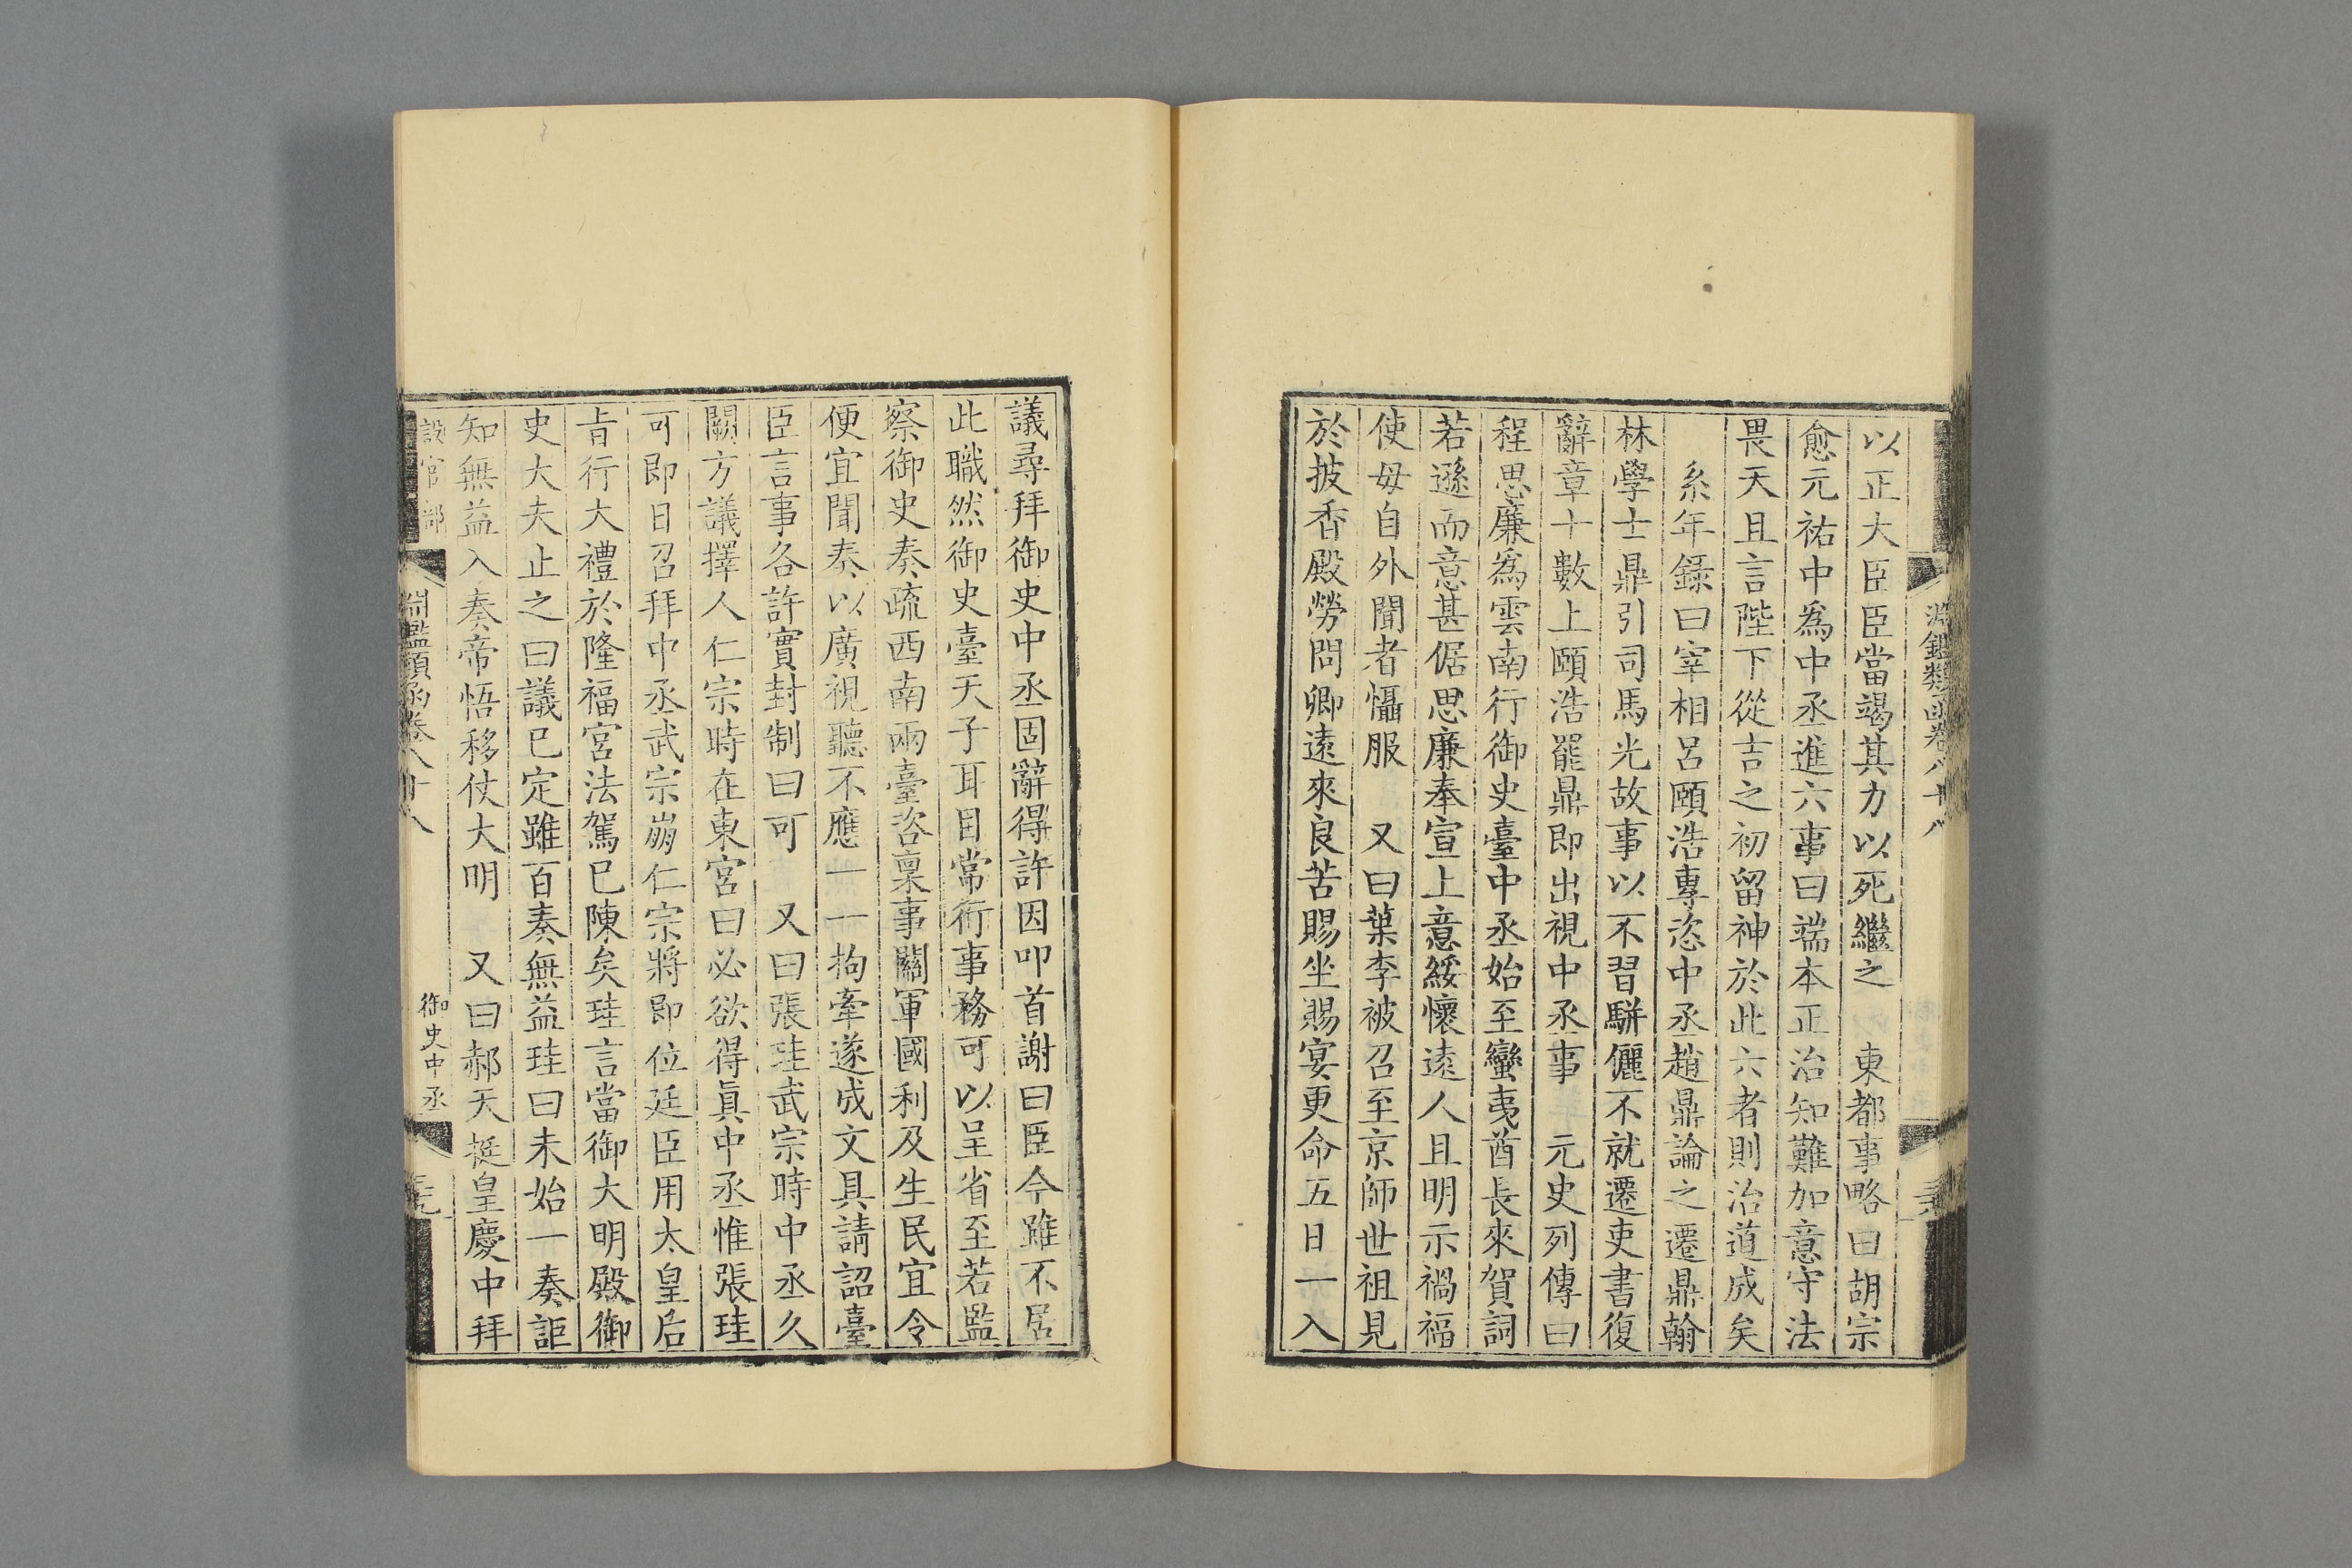 淵鑑類函卷八十八
以正大臣臣當竭其力以死繼之　東都事略曰胡宗
愈元祐中爲中丞進六事曰端本正治知難加意守法
畏天且言陛下從吉之初留神於此六者則治道成矣
系年錄曰宰相呂頤浩專恣中丞趙鼎論之遷鼎翰
林學士鼎引司馬光故事以不習駢儷不就遷吏書復
辭章十數上頤浩罷鼎即出視中丞事　元史列傳曰
程思廉爲雲南行御史臺中丞始至蠻夷酋長來賀詞
若遜而意甚倨思廉奉宣上意綏懷遠人且明示禍福
使毋自外聞者懾服　又曰葉李被召至京師世祖見
於披香殿勞問卿遠來良苦賜坐賜宴更命五日一入
議尋拜御史中丞固辭得許因叩首謝曰臣今雖不居
此職然御史臺天子耳目常衎事務可以呈省至若監
察御史奏疏西南兩臺咨稟事關軍國利及生民宜令
便宜聞奏以廣視聽不應一一拘牽遂成文具請詔臺
臣言事各許實封制曰可　又曰張珪武宗時中丞久
闕方議擇人仁宗時在東宮曰必欲得眞中丞惟張珪
可即日召拜中丞武宗崩仁宗將即位廷臣用太皇后
旨行大禮於隆福宮法駕已陳矣珪言當御大明殿御
史大夫止之曰議已定雖百奏無益珪曰未始一奏詎
知無益入奏帝悟移仗大明　又曰郝天挺皇慶中拜
設官部
淵鑑類函卷八十八
御史中丞